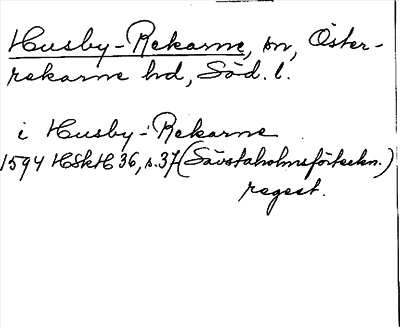 Husby-Rekarne, sn, Öster-
rekarne hd, Söd. l.
i Husby-Rekarne
1594 HSkH 36, s. 37 (Sävstaholmsförteckn.)
regest.